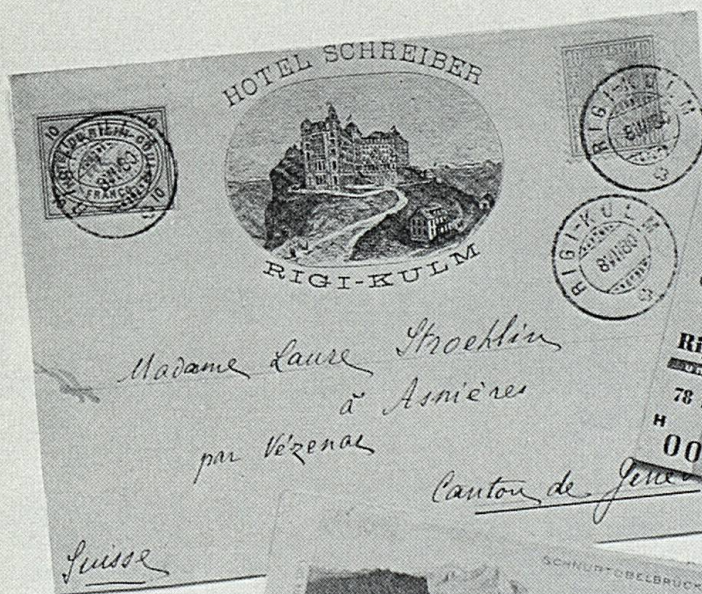 HOTEL SCHREIBER
RIGI-KULM
10
10
10
FRANCO
RIGI-KULM
8VII80
RIGI-KULM
8VII80
Madame Laure Stroehlin
à Asnières
par Vézenas
Canton de Genè
Suisse
Ri
78
H
00
SCHNURTOBELBRÜCK